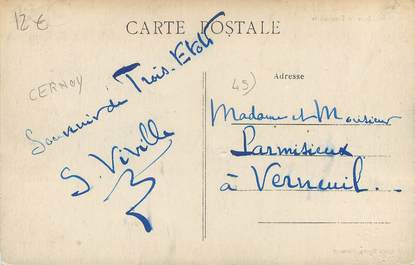 12€
CARTE POSTALE
CERNOY
45)
Adresse
Souvenir de Trois-Etots
S. Viville
Madame et Monsieur
Parmisieux
à Verneuil.